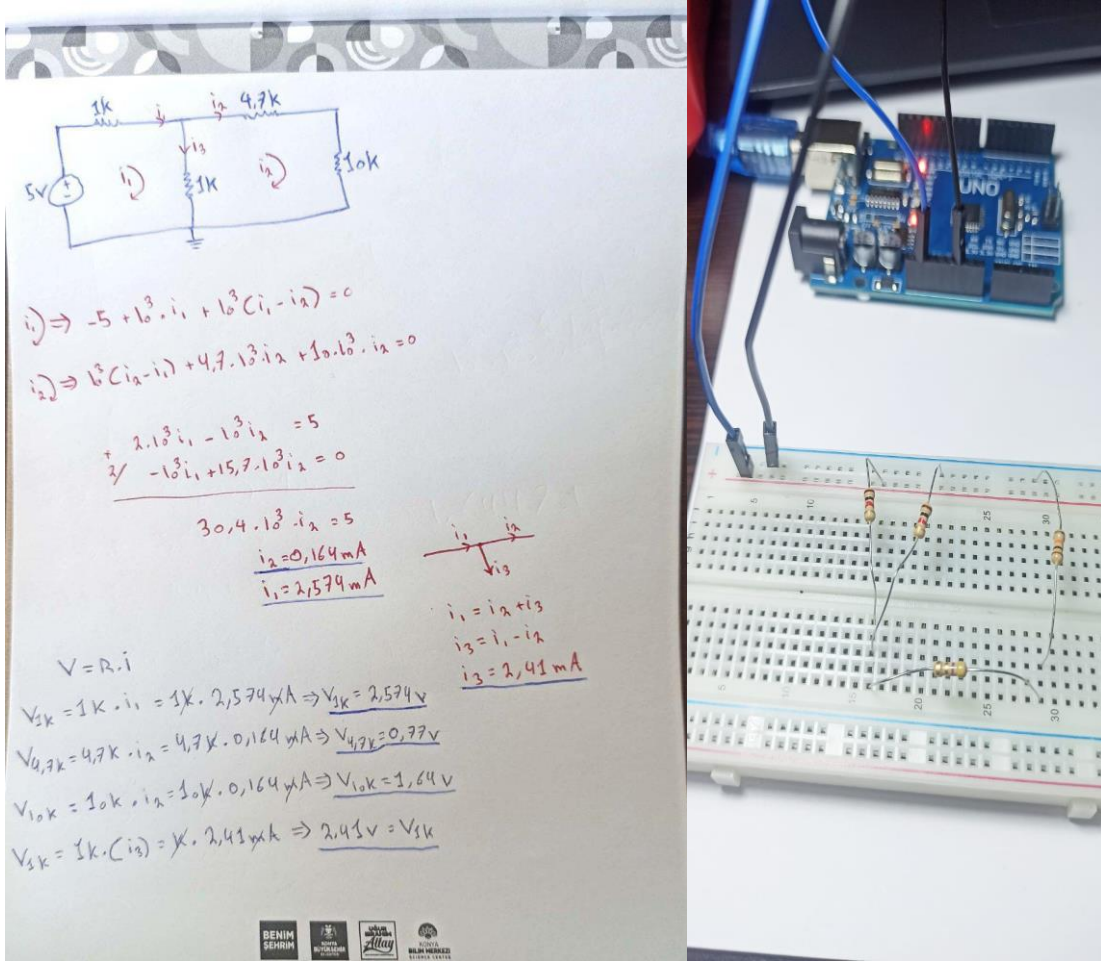 1k
i
i₂
4,7k
i₃
5v
i₁
1k
i₂
10k
i₁) ⇒ -5 + 10³ . i₁ + 10³ (i₁ - i₂) = 0
i₂) ⇒ 10³ (i₂ - i₁) + 4,7 . 10³ . i₂ + 10 . 10³ . i₂ = 0
2 . 10³ i₁ - 10³ i₂ = 5
+
2/ -10³ i₁ + 15,7 . 10³ i₂ = 0
30,4 . 10³ . i₂ = 5
i₂ = 0,164 mA
i₁ = 2,574 mA
i₁
i₂
i₃
i₁ = i₂ + i₃
i₃ = i₁ - i₂
i₃ = 2,41 mA
V = R . i
V1k = 1k . i₁ = 1k . 2,574 mA ⇒ V1k = 2,574 v
V4,7k = 4,7k . i₂ = 4,7k . 0,164 mA ⇒ V4,7k = 0,77 v
V10k = 10k . i₂ = 10k . 0,164 mA ⇒ V10k = 1,64 v
V1k = 1k . (i₃) = k . 2,41 mA ⇒ 2,41 v = V1k
BENİM ŞEHRİM
KONYA BÜYÜKŞEHİR
UĞUR İBRAHİM Altay
KONYA BİLİM MERKEZİ
SCIENCE CENTER
UNO
+
1
5
10
25
30
5
10
20
25
30